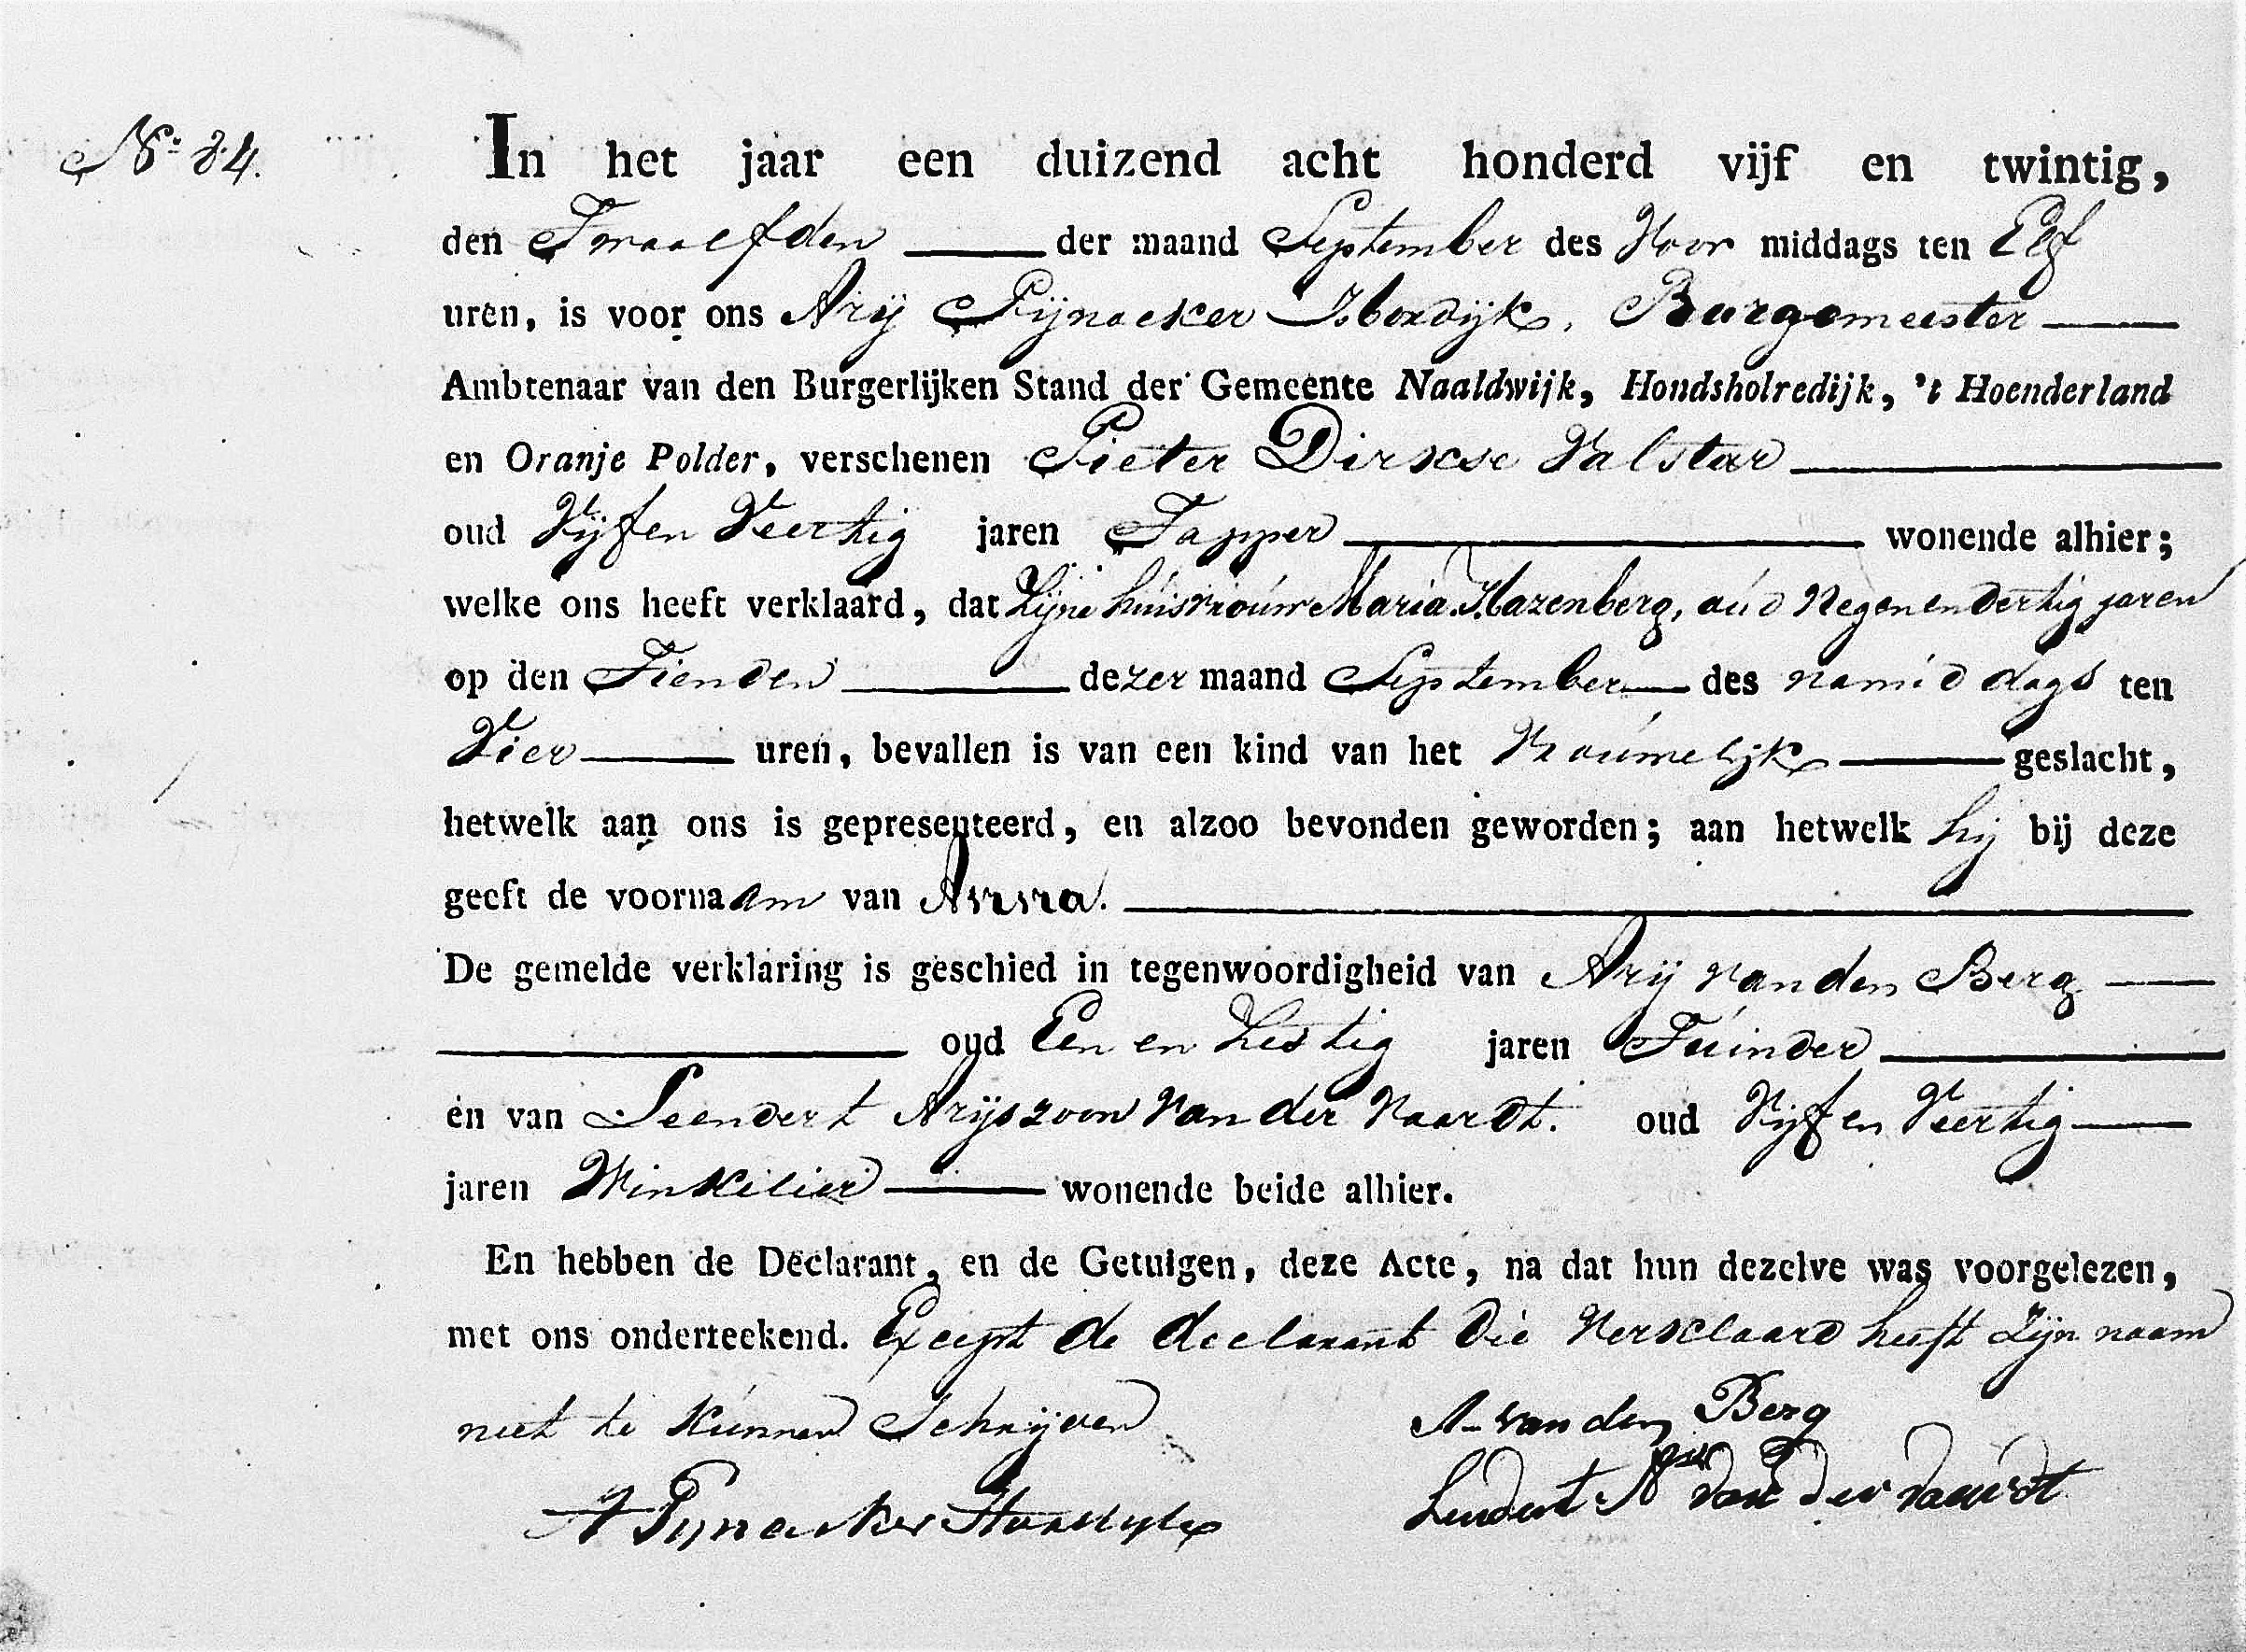 No. 84.
In het jaar een duizend acht honderd vijf en twintig,
den Twaalfden der maand September des Voor middags ten Elf
uren, is voor ons Arij Pijnacker Hordijk, Burgemeester
Ambtenaar van den Burgerlijken Stand der Gemeente Naaldwijk, Hondsholredijk, 't Hoenderland
en Oranje Polder, verschenen Pieter Dirkse Valstar
oud Vijf en Veertig jaren Tapper wonende alhier;
welke ons heeft verklaard, dat Zijne huisvrouw Maria Hazenberg, oud Negen en Dertig jaren
op den Tienden dezer maand September des namiddags ten
Vier uren, bevallen is van een kind van het Vrouwelijk geslacht,
hetwelk aan ons is gepresenteerd, en alzoo bevonden geworden; aan hetwelk hij bij deze
geeft de voornaam van Anna.
De gemelde verklaring is geschied in tegenwoordigheid van Arij van den Berg
oud Een en Zestig jaren Tuinder
en van Leendert Arijszoon van der Vaardt. oud Vijf en Veertig
jaren Winkelier wonende beide alhier.
En hebben de Declarant, en de Getuigen, deze Acte, na dat hun dezelve was voorgelezen,
met ons onderteekend. Except de declarant die Verklaard heeft Zijn naam
niet te kunnen Schrijven
A van den Berg
A Pijnacker Hordijk
Lendert A van der vaardt